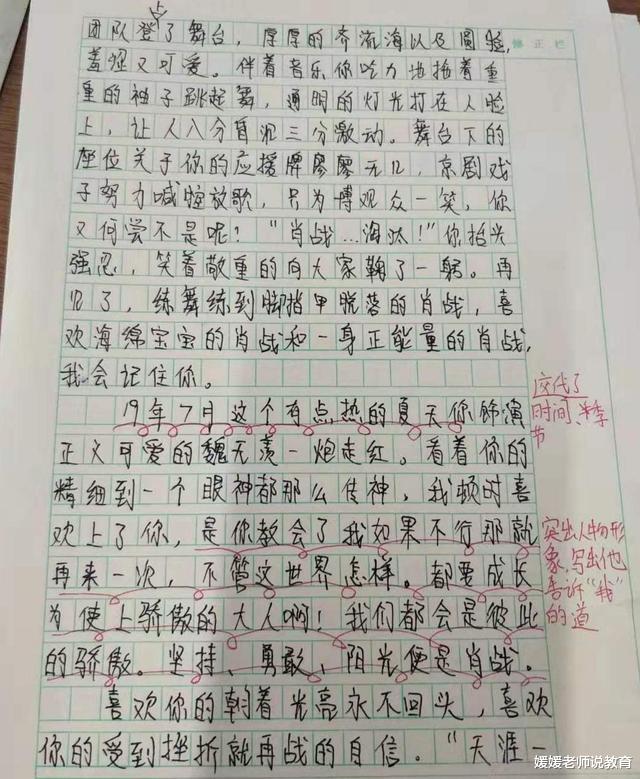 上
团队登了舞台，厚厚的齐流海以及圆脸，
修正栏
羞涩又可爱。伴着音乐你吃力地拖着重
重的袖子跳起舞，通明的灯光打在人脸
上，让人八分自沉三分激动。舞台下的
座位关于你的应援牌廖廖无几，京剧戏
子努力喊嗓放歌，只为博观众一笑，你
又何尝不是呢！“肖战...淘汰！”你抬头
强忍，笑着敬重的向大家鞠了一躬。再
见了，练舞练到脚指甲脱落的肖战，喜
欢海绵宝宝的肖战和一身正能量的肖战，
我会记住你。
19年7月这个有点热的夏天你饰演
交代了
时间、季
节
正义可爱的魏无羡一炮走红。看着你的
精细到一个眼神都那么传神，我顿时喜
欢上了你，是你教会了我如果不行那就
再来一次，不管这世界怎样。都要成长
为使上骄傲的大人啊！我们都会是彼此
的骄傲。坚持、勇敢、阳光便是肖战。
突出人物形
象，写出他
告诉“我”
的道
喜欢你的朝着光亮永不回头，喜欢
你的受到挫折就再战的自信。“天涯一
媛媛老师说教育